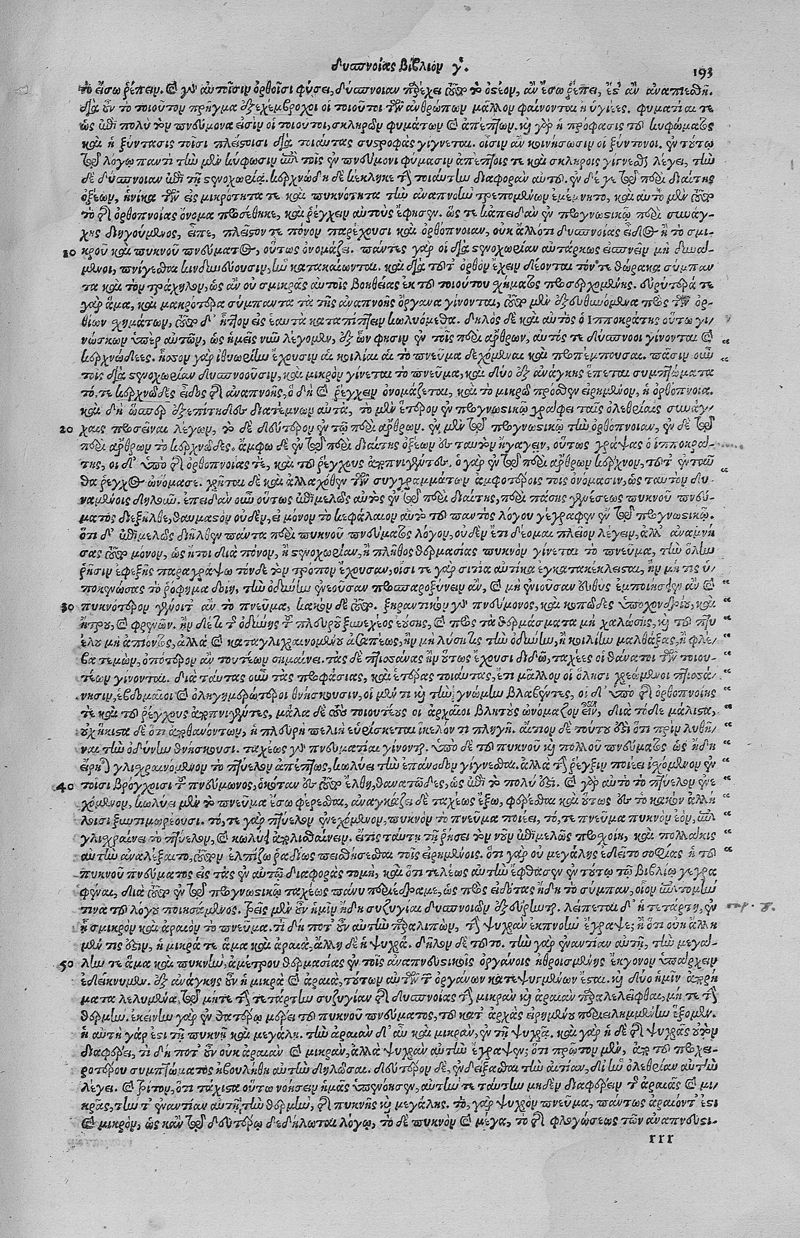 δυσπνοίας βιβλίον γ΄. 193
τὸ εἴσω ῥέπειν. καὶ γὰρ αὐτοῖσιν ὀρθοῖσι φύσει, δύσπνοιαν παρέχει τοῦτο τὸ ὀστέον, ἂν ἔσω ῥέπει, ἐς ἂν ἀναπτυχθῇ.
διὰ ἓν τὸ τοιοῦτον πρῆγμα ἐξεχέμβροχοι οἱ τοιοῦτοι τῶν ἀνθρώπων μᾶλλον φαίνονται ἢ ὑγιέες. φυματίαι τε
ὡς ἐπὶ πολὺ τὸν πνεύμονα εἰσιν οἱ τοιοῦτοι, σκληρῶν φυμάτων καὶ ἀπέπτων. καὶ γὰρ ἡ πρόφασις τοῦ κυφώματος
καὶ ἡ ξύντασις τοῖσι πλείστοισι διὰ τοιαύτας συστροφὰς γίγνεται. οἷσιν ἂν κοινήσωσιν οἱ ξύντονοι. ἐν τούτῳ
τῷ λόγῳ παντὶ τὴν μὲν κύφωσιν ἐπὶ τοῖς ἐν πνεύμονι φύμασιν ἀπέπτοις τε καὶ σκληροῖς γίνεσθαι λέγει, τὴν
δὲ δύσπνοιαν ἐπὶ τῇ στενοχωρίᾳ. κερχνώδη δὲ κέκληκε τὴν τοιαύτην διαφορὰν αὐτοῦ. ἐν δέ γε τῷ περὶ διαίτης
ὀξέων, ἡνίκα τῶν εἰς μικρότητά τε καὶ πυκνότητα τὴν ἀναπνοὴν τρεπομένων ἐμέμνητο, καὶ αὐτὸ μὲν τοῦτο
τὸ τῆς ὀρθοπνοίας ὄνομα προσέθηκε, καὶ ῥέγχειν αὐτοὺς ἔφησεν. ὥς τε κἀπειδὰν ἐν προγνωστικῷ περὶ συνάγ-
χης διηγούμενος, εἶπε, πλεῖστόν τε πόνον παρέχουσι καὶ ὀρθοπνοιαν, οὐκ ἄλλό τι δυσπνοίας εἶδος ἢ τὸ σμι-
10 κροῦ καὶ πυκνοῦ πνεύματος, οὕτως ὀνομάζει. πάντες γὰρ οἱ διὰ στενοχωρίαν αὐτάρκως εἰσπνεῖν μὴ δυνά-
μενοι, πνίγεσθαι κινδυνεύουσιν, ἢν κατακαίωνται. καὶ διὰ τοῦτ' ὀρθὸν ἔχειν δέονται τόν τε θώρακα σύμπαν
τα καὶ τὸν τράχηλον, ὡς ἂν οὐ σμικρᾶς αὐτοῖς βοηθείας ἐκ τοῦ τοιούτου σχήματος προσερχομένης. εὐρύτερά τε
γὰρ ἅμα, καὶ μακρότερα σύμπαντα τὰ τῆς ἀναπνοῆς ὄργανα γίνονται, τοῦτο μὲν ἐξευθυνόμενα πρὸς τῶν ὀρ-
θίων σχημάτων, τοῦτο δ' ἧττον εἰς ἑαυτὰ καταπίπτειν κωλυόμενα. δῆλος δὲ καὶ αὐτὸς ὁ Ἱπποκράτης οὕτω γι-
νώσκων ὑπὲρ αὐτῶν, ὡς ἡμεῖς νῦν λέγομεν, ἐξ ὧν φησιν ἐν τοῖς περὶ ἄρθρων, αὐτός τε δύσπνοοι γίνονται καὶ
κερχνώδεες. ἧσσον γὰρ εὐρυχωρίην ἔχουσιν αἱ κοιλίαι αἱ τὸ πνεῦμα δεχόμεναι καὶ προπέμπουσαι. πᾶσιν οὖν
τοῖς διὰ στενοχωρίαν δυσπνοοῦσιν, καὶ μικρὸν γίνεται τὸ πνεῦμα, καὶ δύο ἐξ ἀνάγκης ἕπεται συμπτώματα
τό, τε κερχνῶδες εἶδος τῆς ἀναπνοῆς, ὃ δὴ καὶ ῥέγχειν ὀνομάζεται, καὶ τὸ μικρῷ πρόσθεν εἰρημένον, ἡ ὀρθόπνοια.
καὶ δὴ ὥσπερ ἐξεπίτηδες διατέμνων αὐτά, τὸ μὲν ἕτερον ἐν προγνωστικῷ γράφει ταῖς ὀλεθρίαις συνάγ-
20 χαις προσεῖναι λέγων, τὸ δὲ δεύτερον ἐν τῷ περὶ ἄρθρων. ἐν μὲν προγνωστικῷ τὴν ὀρθόπνοιαν, ἐν δὲ τῷ
περὶ ἄρθρων τὸ κερχνῶδες. ἄμφω δὲ ἐν τῷ περὶ διαίτης ὀξέων εὖ ταὐτὸν ἤγαγεν, οὕτως γράψας ὁ ἱπποκρά-
της, οἱ δ' ὑπὸ τῆς ὀρθοπνοίας τε, καὶ τοῦ ῥέγχους ἀποπνιγέντες. ὃ γὰρ ἐν τῷ περὶ ἄρθρων κέρχνον, τοῦτ' ἐνταῦ
θα ῥέγχος ὠνόμασε. χρῆται δὲ καὶ ἀλλαχόθεν τῶν συγγραμμάτων ἀμφοτέροις τοῖς ὀνόμασιν, ὡς ταὐτὸν δυ-
ναμένοις δηλοῦν. ἐπειδὰν οὖν οὕτως ἐπιμελῶς αὐτὸς ἐν τῷ περὶ διαίτης, περὶ πάσης γενέσεως πυκνοῦ πνεύ-
ματος διεξῆλθε, θαυμαστὸν οὐδέν, εἰ μόνον τὸ κεφάλαιον αὐτὸ τοῦ παντὸς λόγου γέγραφεν ἐν τῷ προγνωστικῷ.
ὅτι δ' ἐπιμελῶς διῆλθεν πάντα περὶ πυκνοῦ πνεύματος λόγον, οὐδὲν ἔτι δέομαι πλεῖον λέγειν, ἀλλ' ἀναμνή
σας τοῦτο μόνον, ὡς ἤτοι διὰ πόνον, ἢ στενοχωρίαν, ἢ πλῆθος θερμασίας πυκνὸν γίνεται τὸ πνεῦμα, τὴν ὅλην
ῥῆσιν ἐφεξῆς παραγράψω τόνδε τὸν τρόπον ἔχουσαν, οἷσί τε γὰρ σιτία αὐτίκα ἐγκατακέκλεισται, ἢν μή τις ὑ-
ποκενώσας τὸ ῥόφημα δοίη, τὴν ὀδύνην ἐνεοῦσαν προσπαροξύνειεν ἄν, καὶ μὴ ἐνιοῦσαν εὐθὺς ἐμποιήσειεν ἂν καὶ
30 πυκνότερον γένοιτ' ἂν τὸ πνεῦμα, κακὸν δὲ τοῦτο. ξηραντικόν γε πνεύμονος, καὶ κοπῶδες ὑποχονδρίων, καὶ
ἤτρου, καὶ φρενῶν. ἢν δ' ἔτι τῆς ὀδύνης τοῦ πλευροῦ ξυνεχέος ἐούσης, καὶ πρὸς τὰ θερμάσματα μὴ χαλώσης, καὶ τοῦ πτυέ-
λου μὴ ἀπιόντος, ἀλλὰ καὶ καταγλισχραινομένου ἀσαπέως, ἢν μὴ λύσῃ τις τὴν ὀδύνην, ἢ κοιλίην μαλθάξας, ἢ φλέ-
βα τεμών, ὁπότερον ἂν τουτέων σημαίνει. τὰς δὲ πτισάνας ἢν οὕτως ἔχουσι διδῷ, ταχέες οἱ θάνατοι τῶν τοιου-
τέων γίνονται. διὰ ταύτας οὖν τὰς προφάσιας, καὶ ἑτέρας τοιαύτας, ἔτι μᾶλλον οἱ ὅλῃσι χρεόμενοι πτισά-
νῃσιν, ἑβδομαῖοι καὶ ὀλιγημερώτεροι θνήσκουσιν, οἱ μέν τι καὶ τὴν γνώμην βλαβέντες, οἱ δ' ὑπὸ τῆς ὀρθοπνοίης
τε καὶ τοῦ ῥέγχους ἀποπνιγέντες, μάλα δὲ τοὺς τοιούτους οἱ ἀρχαῖοι βλητοὺς ὠνόμαζον εἶναι, διὰ τόδε μάλιστα,
οὐχ ἥκιστα δὲ ὅτι ἀποθανόντων, ἡ πλευρὴ πελιὴ εὑρίσκεται ἴκελόν τι πληγῇ. αἴτιον δὲ τούτου ἐστὶ ὅτι πρὶν λυθῆ-
ναι τὴν ὀδύνην θνήσκουσι. ταχέως γὰρ πνευματίαι γίνονται. ὑπὸ δὲ τοῦ πυκνοῦ καὶ πολλοῦ πνεύματος ὡς ἤδη
εἴρηται γλισχραινόμενον τὸ πτύελον ἀπέπτως, κωλύει τὴν ἐπάνοδον γίγνεσθαι. ἀλλὰ τὴν ῥέγξιν ποιεῖ ἰσχόμενον ἐν
40 τοῖσι βρογχίοισι τοῦ πνεύμονος, ὁκόταν ἐς τοῦτο ἔλθῃ, θανατῶδες, ὡς ἐπὶ τὸ πολὺ ἐστί. καὶ γὰρ αὐτὸ τὸ πτύελον ἐνε
χόμενον, κωλύει μὲν τὸ πνεῦμα ἔσω φέρεσθαι, ἀναγκάζει δὲ ταχέως ἔξω, φέρεσθαι καὶ οὕτως ἐς τὸ κακὸν ἀλλή
λοισι ξυντιμωρέουσι. τό, τε γὰρ πτύελον ἐνεχόμενον, πυκνὸν τὸ πνεῦμα ποιέει, τό, τε πνεῦμα πυκνὸν ἐόν, ἐπι
γλισχραίνει τὸ πτύελον, καὶ κωλύει ἀπολισθαίνειν. εἴ τις ταύτῃ τῇ ῥήσει τὸν νοῦν ἐπιμελῶς προσέχοι, καὶ πολλάκις
αὐτὴν ἀναλέξαιτο, τοῦτον ἐλπίζω ῥᾳδίως πεισθήσεσθαι τοῖς εἰρημένοις. ὅτι γὰρ οὐ μεγάλης ἐδεῖτο σοφίας ἡ τοῦ
πυκνοῦ πνεύματος εἰς τὰς ἐν αὐτῷ διαφορὰς τομή, καὶ ὅτι τελέως αὐτὴν ἔφθασεν ἐν τούτῳ τῷ βιβλίῳ γεγρα
φέναι, διὰ τοῦτο ἐν τῷ προγνωστικῷ ταχέως πάνυ παρέδραμε, ὡς πρὸς εἰδότας ἤδη τὸ σύμπαν, οἷον ἐπιτομήν
τινα τοῦ λόγου ποιησάμενος. τρεῖς μὲν οὖν ἡμῖν ἤδη συζυγίαι δυσπνοιῶν ἐξεύρηνται. λείπεται δ' ἡ τετάρτη, ἐν
ᾗ σμικρὸν καὶ ἀραιὸν τὸ πνεῦμα. τί δή ποτ' οὖν αὐτὴν παραλιπών, τὴν ψυχρὰν ἐκπνοὴν ἔγραψε; ἢ ὅτι οὐκ ἄλλη
μέν τις ἐστιν, ἡ μικρά τε ἅμα καὶ ἀραιά, ἄλλη δὲ ἡ ψυχρά. δῆλον δὲ τοῦτο. τὴν γὰρ ἐναντίαν αὐτῇ, τὴν μεγάλ-
50 λην τε ἅμα καὶ πυκνήν, ἀμέτρου θερμασίας ἐν τοῖς ἀναπνευστικοῖς ὀργάνοις ἠθροισμένης ἔκγονον ὑπάρχειν
ἐδείκνυμεν. ἐξ ἀνάγκης οὖν ἡ μικρὰ καὶ ἀραιά, τούτων αὐτῶν τῶν ὀργάνων κατεψυγμένων ἔσται. καὶ δύο ἡμῖν ἀπορή
ματα λέλυμένα, τῷ μήτε τὴν τετάρτην συζυγίαν τῆς δυσπνοίας τὴν μικρὰν καὶ ἀραιὰν παραλελεῖφθαι, μή τε τὴν
θερμήν. ἐκείνην γὰρ ἐν θατέρῳ μέρει τοῦ πυκνοῦ πνεύματος, τοῦ κατ' ἀρχὰς εἰρημένου περιειλημμένην ἕξομεν.
ἡ αὐτὴ γάρ ἐστι τῇ πυκνῇ καὶ μεγάλῃ. τὴν ἀραιὰν δ' αὖ καὶ μικράν, ἐν τῇ ψυχρᾷ. καὶ γὰρ ἥδε τῆς ψυχρᾶς οὐδὲν
διαφέρει, τί δή ποτ' οὖν οὐκ ἀραιὰν καὶ μικράν, ἀλλὰ ψυχρὰν αὐτὴν ἔγραψεν; ὅτι πρῶτον μὲν, ἀπὸ τοῦ προχει-
ροτέρου συμπτώματος ἠβουλήθη αὐτὴν δηλῶσαι. δεύτερον δὲ, ἐνδείξασθαι τὴν αἰτίαν, δι' ἣν ὀλεθρίαν αὐτὴν
λέγει. καὶ τρίτον, ὅτι τάχιστα οὕτω νοήσειν ἡμᾶς ὑπενόησεν, αὐτήν τε ταύτην μηδὲν διαφέρειν τῆς ἀραιᾶς καὶ μι-
κρᾶς, τήν τ' ἐναντίαν αὐτῇ τὴν θερμήν, τῆς πυκνῆς καὶ μεγάλης. τὸ, γὰρ ψυχρὸν πνεῦμα, πάντως ἀραιόν τ' ἐστὶ
καὶ μικρόν, ὡς κἀν τῷ δευτέρῳ δεδήλωται λόγῳ, τὸ δὲ πυκνὸν καὶ μέγα, τὸ τῆς φλογώσεως τῶν ἀναπνευστι-
rrr